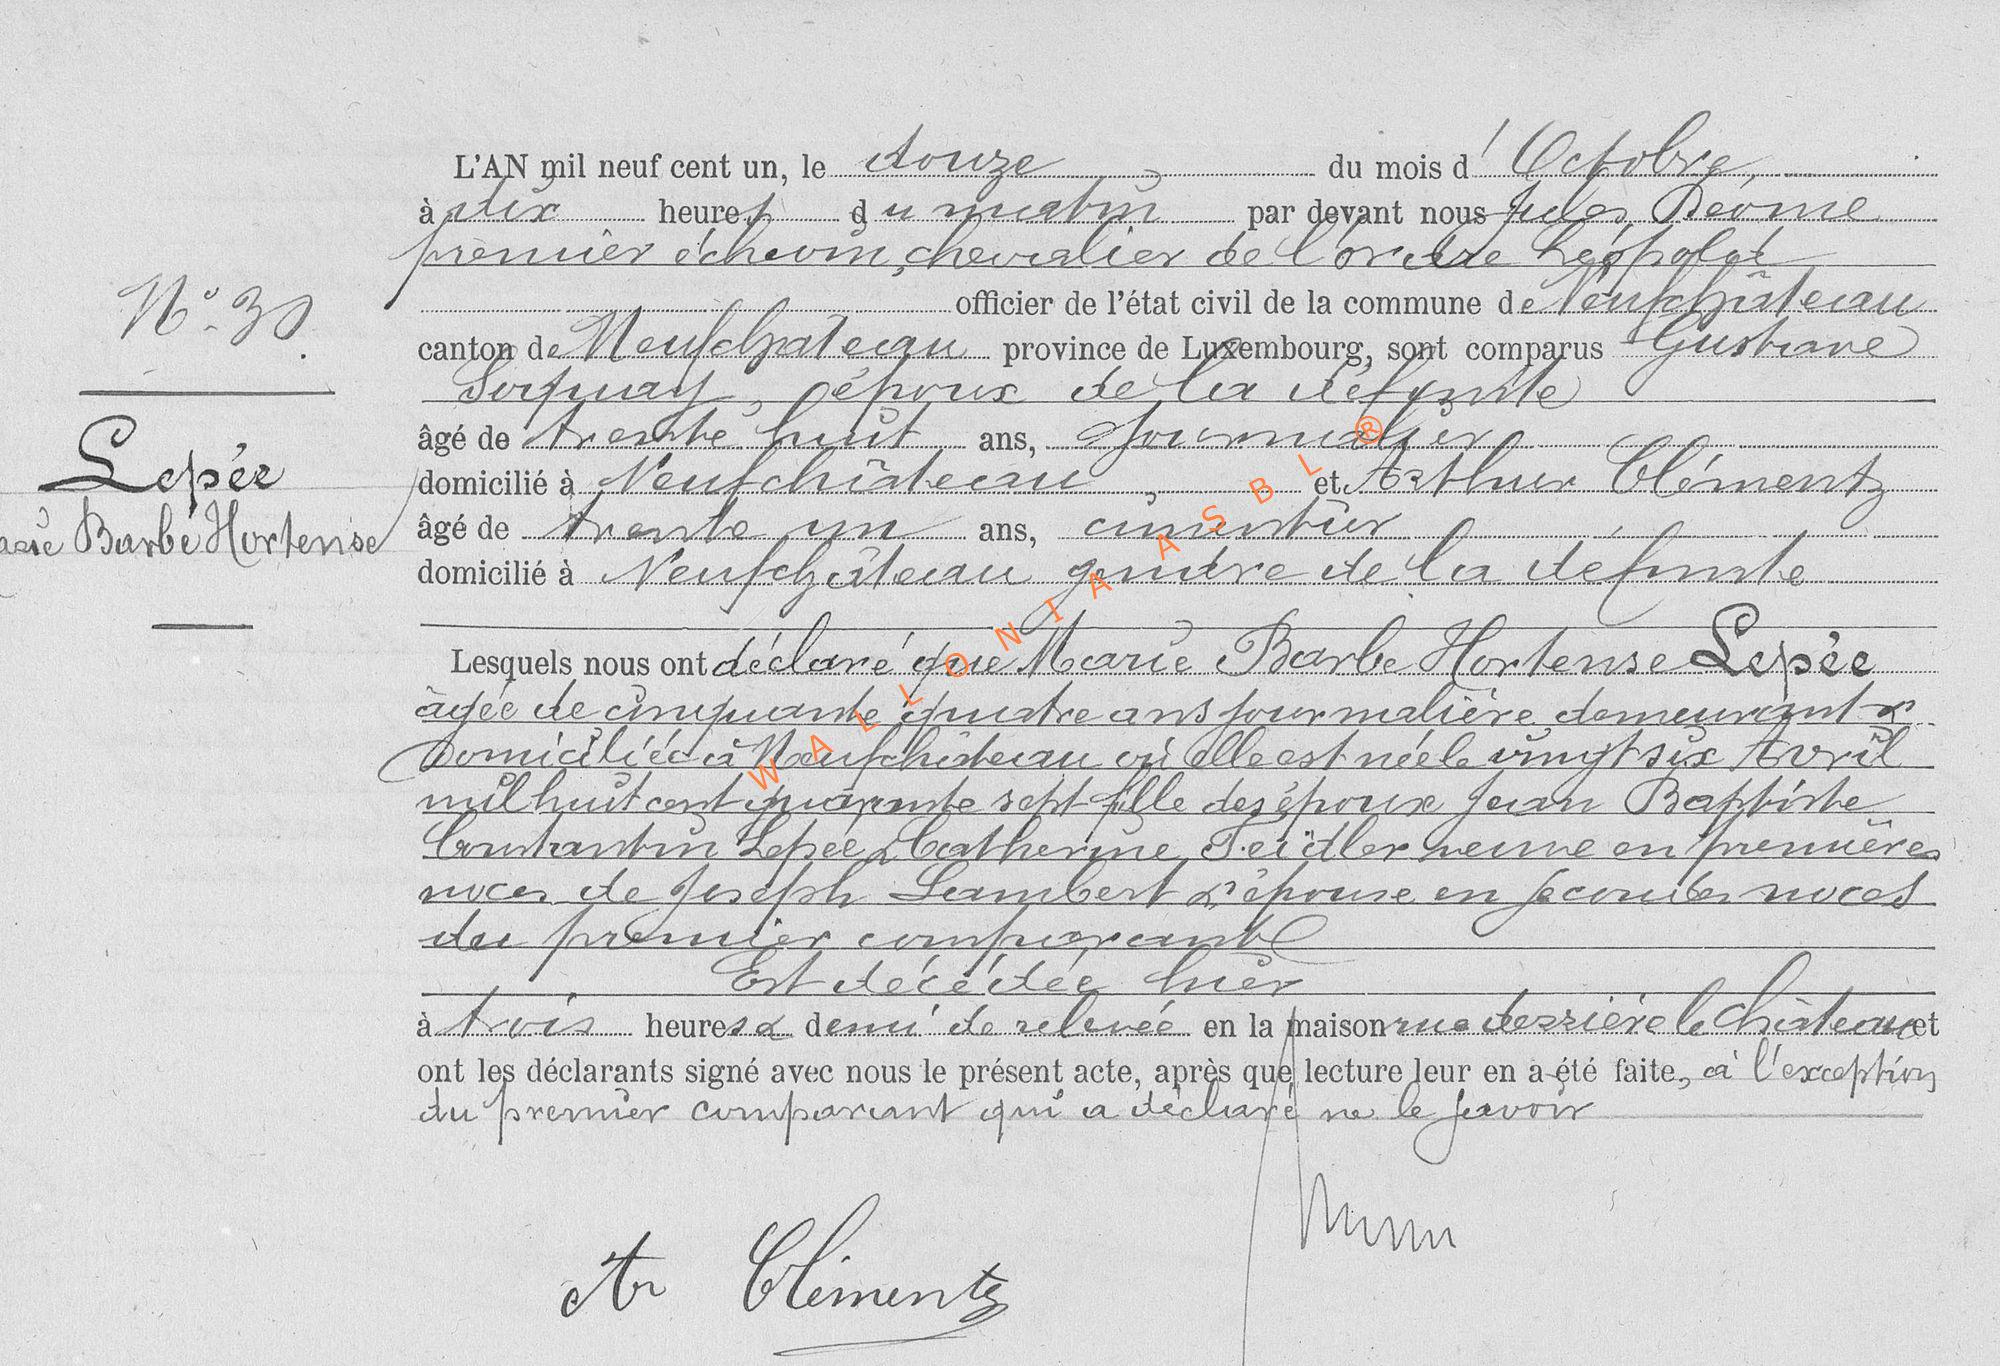 L'AN mil neuf cent un, le douze du mois d'Octobre,
à dix heures du matin par devant nous Jules
premier échevin, chevalier de l'ordre Léopold
officier de l'état civil de la commune de Neufchâteau
N° 
canton de Neufchâteau province de Luxembourg, sont comparus Gustave
époux de la défunte
âgé de trente huit ans, journalier
Lepée
domicilié à Neufchâteau, et Arthur Clémentz
Marie Barbe Hortense
âgé de trente un ans,
domicilié à Neufchâteau gendre de la défunte
Lesquels nous ont déclaré que Marie Barbe Hortense Lepée
âgée de cinquante quatre ans journalière demeurant &
domiciliée à Neufchâteau où elle est née le vingt six Avril
mil huit cent quarante sept fille des époux Jean Baptiste
Constantin Lepée & Catherine Feidler veuve en premières
noces de Joseph Lambert & épouse en secondes noces
du premier comparant
Est décédée hier
à trois heures & demi de relevée en la maison rue derrière le Château et
ont les déclarants signé avec nous le présent acte, après que lecture leur en a été faite, à l'exception
du premier comparant qui a déclaré ne le savoir
Ar Clémentz
WALLONIA ASBL ®